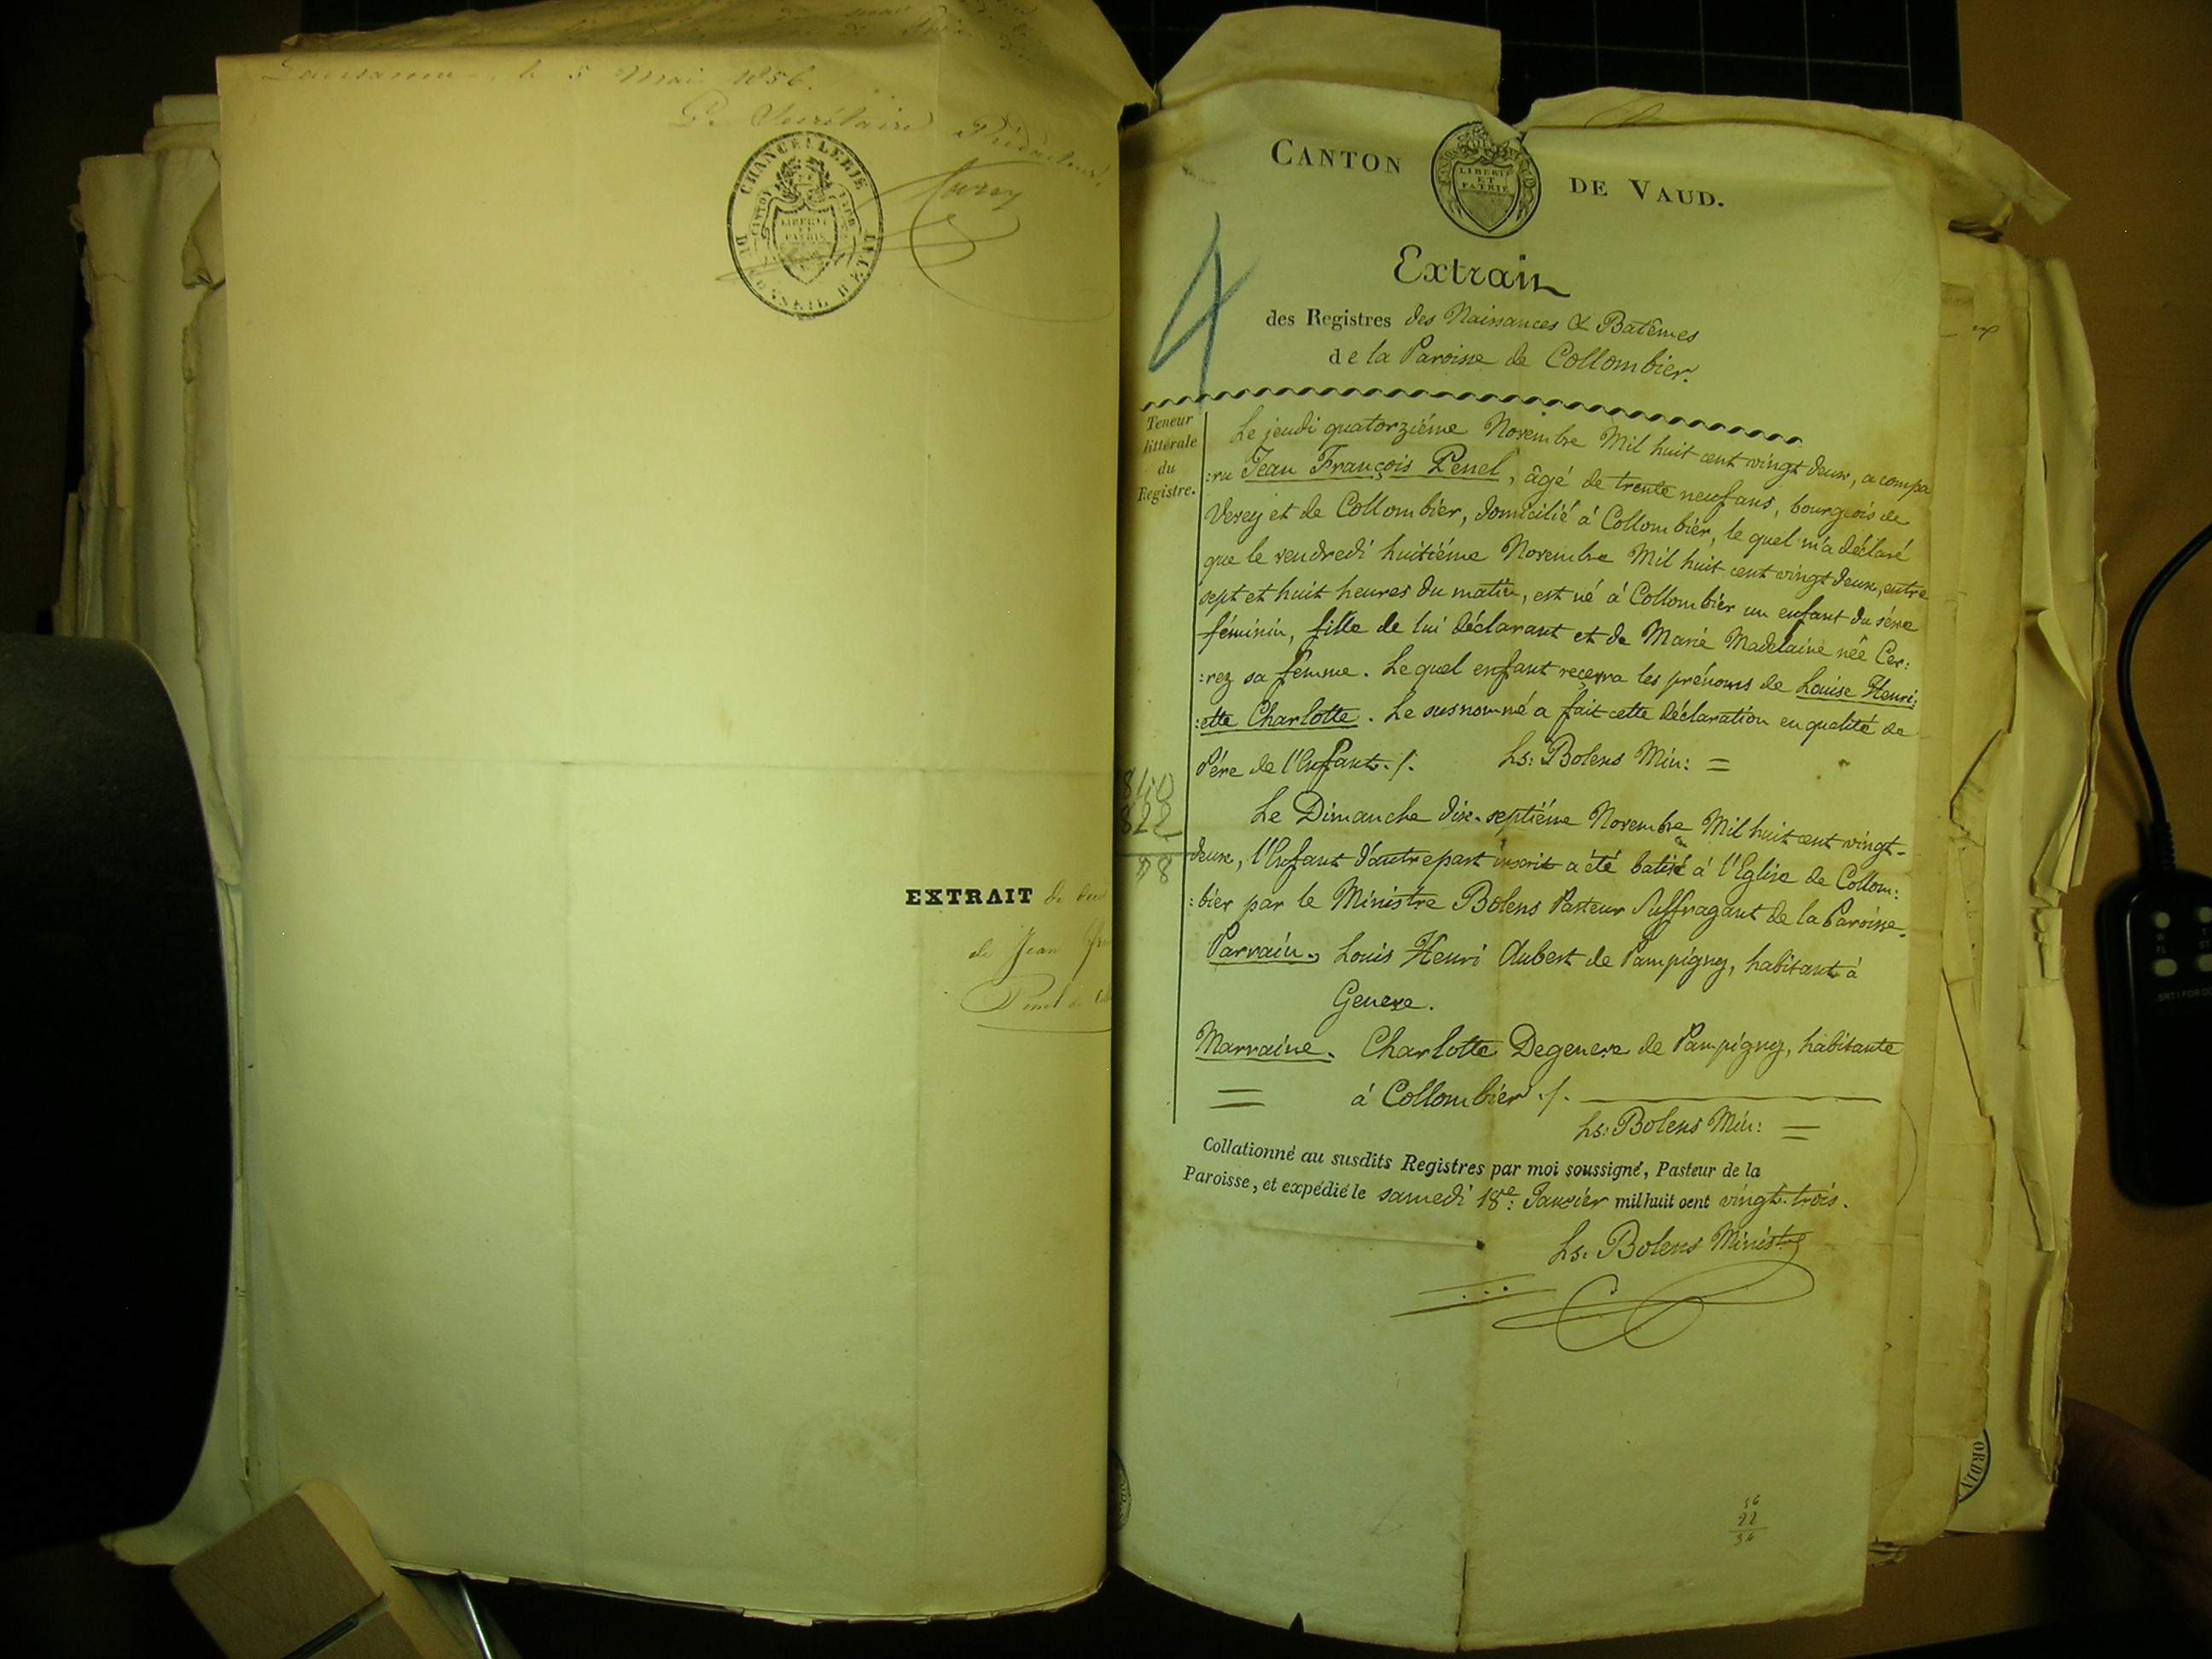 Lausanne, le 5 Mai 1856.
Le Secrétaire Rédacteur,
CHANCELLERIE
DU CONSEIL D'ETAT
CANTON DE VAUD
LIBERTÉ
ET
PATRIE
EXTRAIT de
de Jean
Penel de
CANTON DE VAUD.
LIBERTE
ET
PATRIE
Extrait
des Registres des Naissances & Batêmes
de la Paroisse de Collombier.
Teneur
littérale
du
Registre.
Le jeudi quatorziéme Novembre Mil huit cent vingt deux, a compa
:ru Jean François Penel, âgé de trente neuf ans, bourgeois de
Verey et de Collombier, domicilié à Collombier, le quel m'a déclaré
que le vendredi huitiéme Novembre Mil huit cent vingt deux, entre
sept et huit heures du matin, est né à Collombier un enfant du séxe
féminin, fille de lui déclarant et de Marie Madelaine née Cer:
:rez sa femme. Le quel enfant recevra les prénoms de Louise Henri:
:ette Charlotte. Le susnommé a fait cette déclaration en qualité de
Pére de l'Enfant ./. Ls: Bolens Min: =
840
822
18
Le Dimanche dix-septiéme Novembre Mil huit cent vingt-
deux, l'Enfant d'autre part inscrit a été batisé à l'Eglise de Collom:
:bier par le Ministre Bolens Pasteur Suffragant de la Paroisse.
Parrain. Louis Henri Aubert de Pampigny, habitant à
Geneve.
Marraine. Charlotte Degeneve de Pampigny, habitante
= à Collombier ./.
Ls: Bolens Min: =
Collationné au susdits Registres par moi soussigné, Pasteur de la
Paroisse, et expédié le samedi 18e: Janvier mil huit cent vingt-trois.
Ls. Bolens Ministre
56
22
34